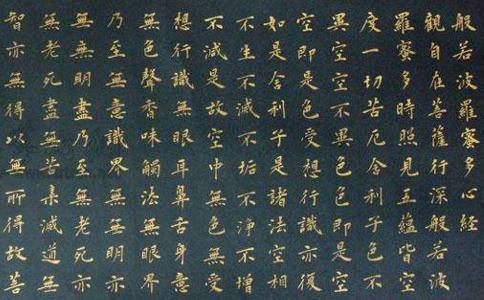 般若波羅蜜多心經
觀自在菩薩行深般若波
羅蜜多時照見五蘊皆空
度一切苦厄舍利子色不
異空空不異色色即是空
空即是色受想行識亦復
如是舍利子是諸法空相
不生不滅不垢不淨不增
不減是故空中無色無受
想行識無眼耳鼻舌身意
無色聲香味觸法無眼界
乃至無意識界無無明亦
無無明盡乃至無老死亦
無老死盡無苦集滅道無
智亦無得以無所得故菩